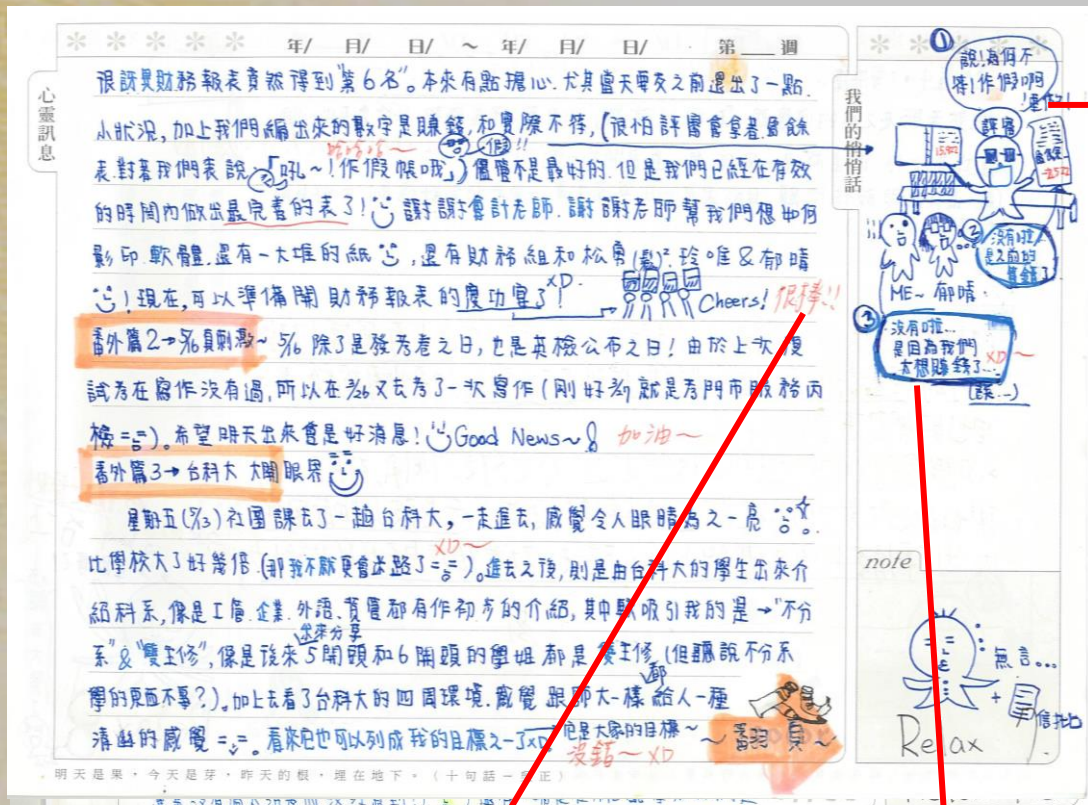 年/ 月/ 日/ ~ 年/ 月/ 日/ 第 週
心靈訊息
很訝異財務報表竟然得到"第6名"。本來有點擔心.尤其當天要交之前還出了一點.
小狀況,加上我們編出來的數字是賺錢,和實際不符,(很怕評審會拿着盈餘
哈哈哈~ 假!!
表.對著我們表說「吼~!作假帳哦」)儘管不是最好的.但是我們已經在有效
的時間內做出最完善的表了!謝謝會計老師.謝謝老師幫我們想如何
影印.軟體.還有一大堆的紙,還有財務組和松勇 玲唯&郁晴
!現在,可以準備開財務報表的慶功宴了xD! Cheers! 很棒!!
番外篇2→5/6真刺激~ 5/6 除了是發考卷之日,也是英檢公布之日!由於上次複
試考在寫作沒有過,所以在3/26又去考了一次寫作(剛好3/27就是考門市服務丙
檢==)。希望明天出來會是好消息!Good News~ 加油~
番外篇3→台科大 大開眼界
星期五(5/3)社團課去了一趟台科大,一走進去,感覺令人眼睛為之一亮
xD~
比學校大了好幾倍.(那我不就更會迷路了==)。進去之後,則是由台科大的學生出來介
紹科系,像是工管.企業.外語.資管都有作初步的介紹,其中較吸引我的是→"不分
出來分享
系"&"雙主修",像是後來5開頭和6開頭的學姐都是雙主修(但聽說不分系
都
學的東西不專?)。加上去看了台科大的四周環境.感覺跟師大一樣給人一種
清幽的感覺==。看來它也可以列成我的目標之一了xD 它是大家的目標~
沒錯~xD
~翻頁~
明天是果,今天是芽,昨天的根,埋在地下。(十句話—
我們的悄悄話
①
說!為何不
符!作假啊
!重做!
評審
盈餘
②
沒有啦
是之前的
ME~ 郁晴.
③
沒有啦...
是因為我們
太想賺錢了...
xD~
(誤..)
note
無言...
+
Relax